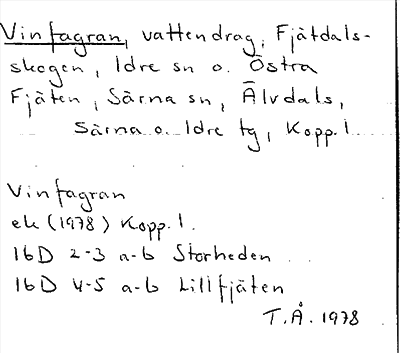 Vinfagran, vattendrag, Fjätdals-
skogen, Idre sn o. Östra
Fjäten, Särna sn, Älvdals,
Särna o. Idre tg, Kopp.l.
Vinfagran
ek (1978) Kopp.l.
16D 2-3 a-b Storheden
16D 4-5 a-b Lillfjäten
T.Å. 1978